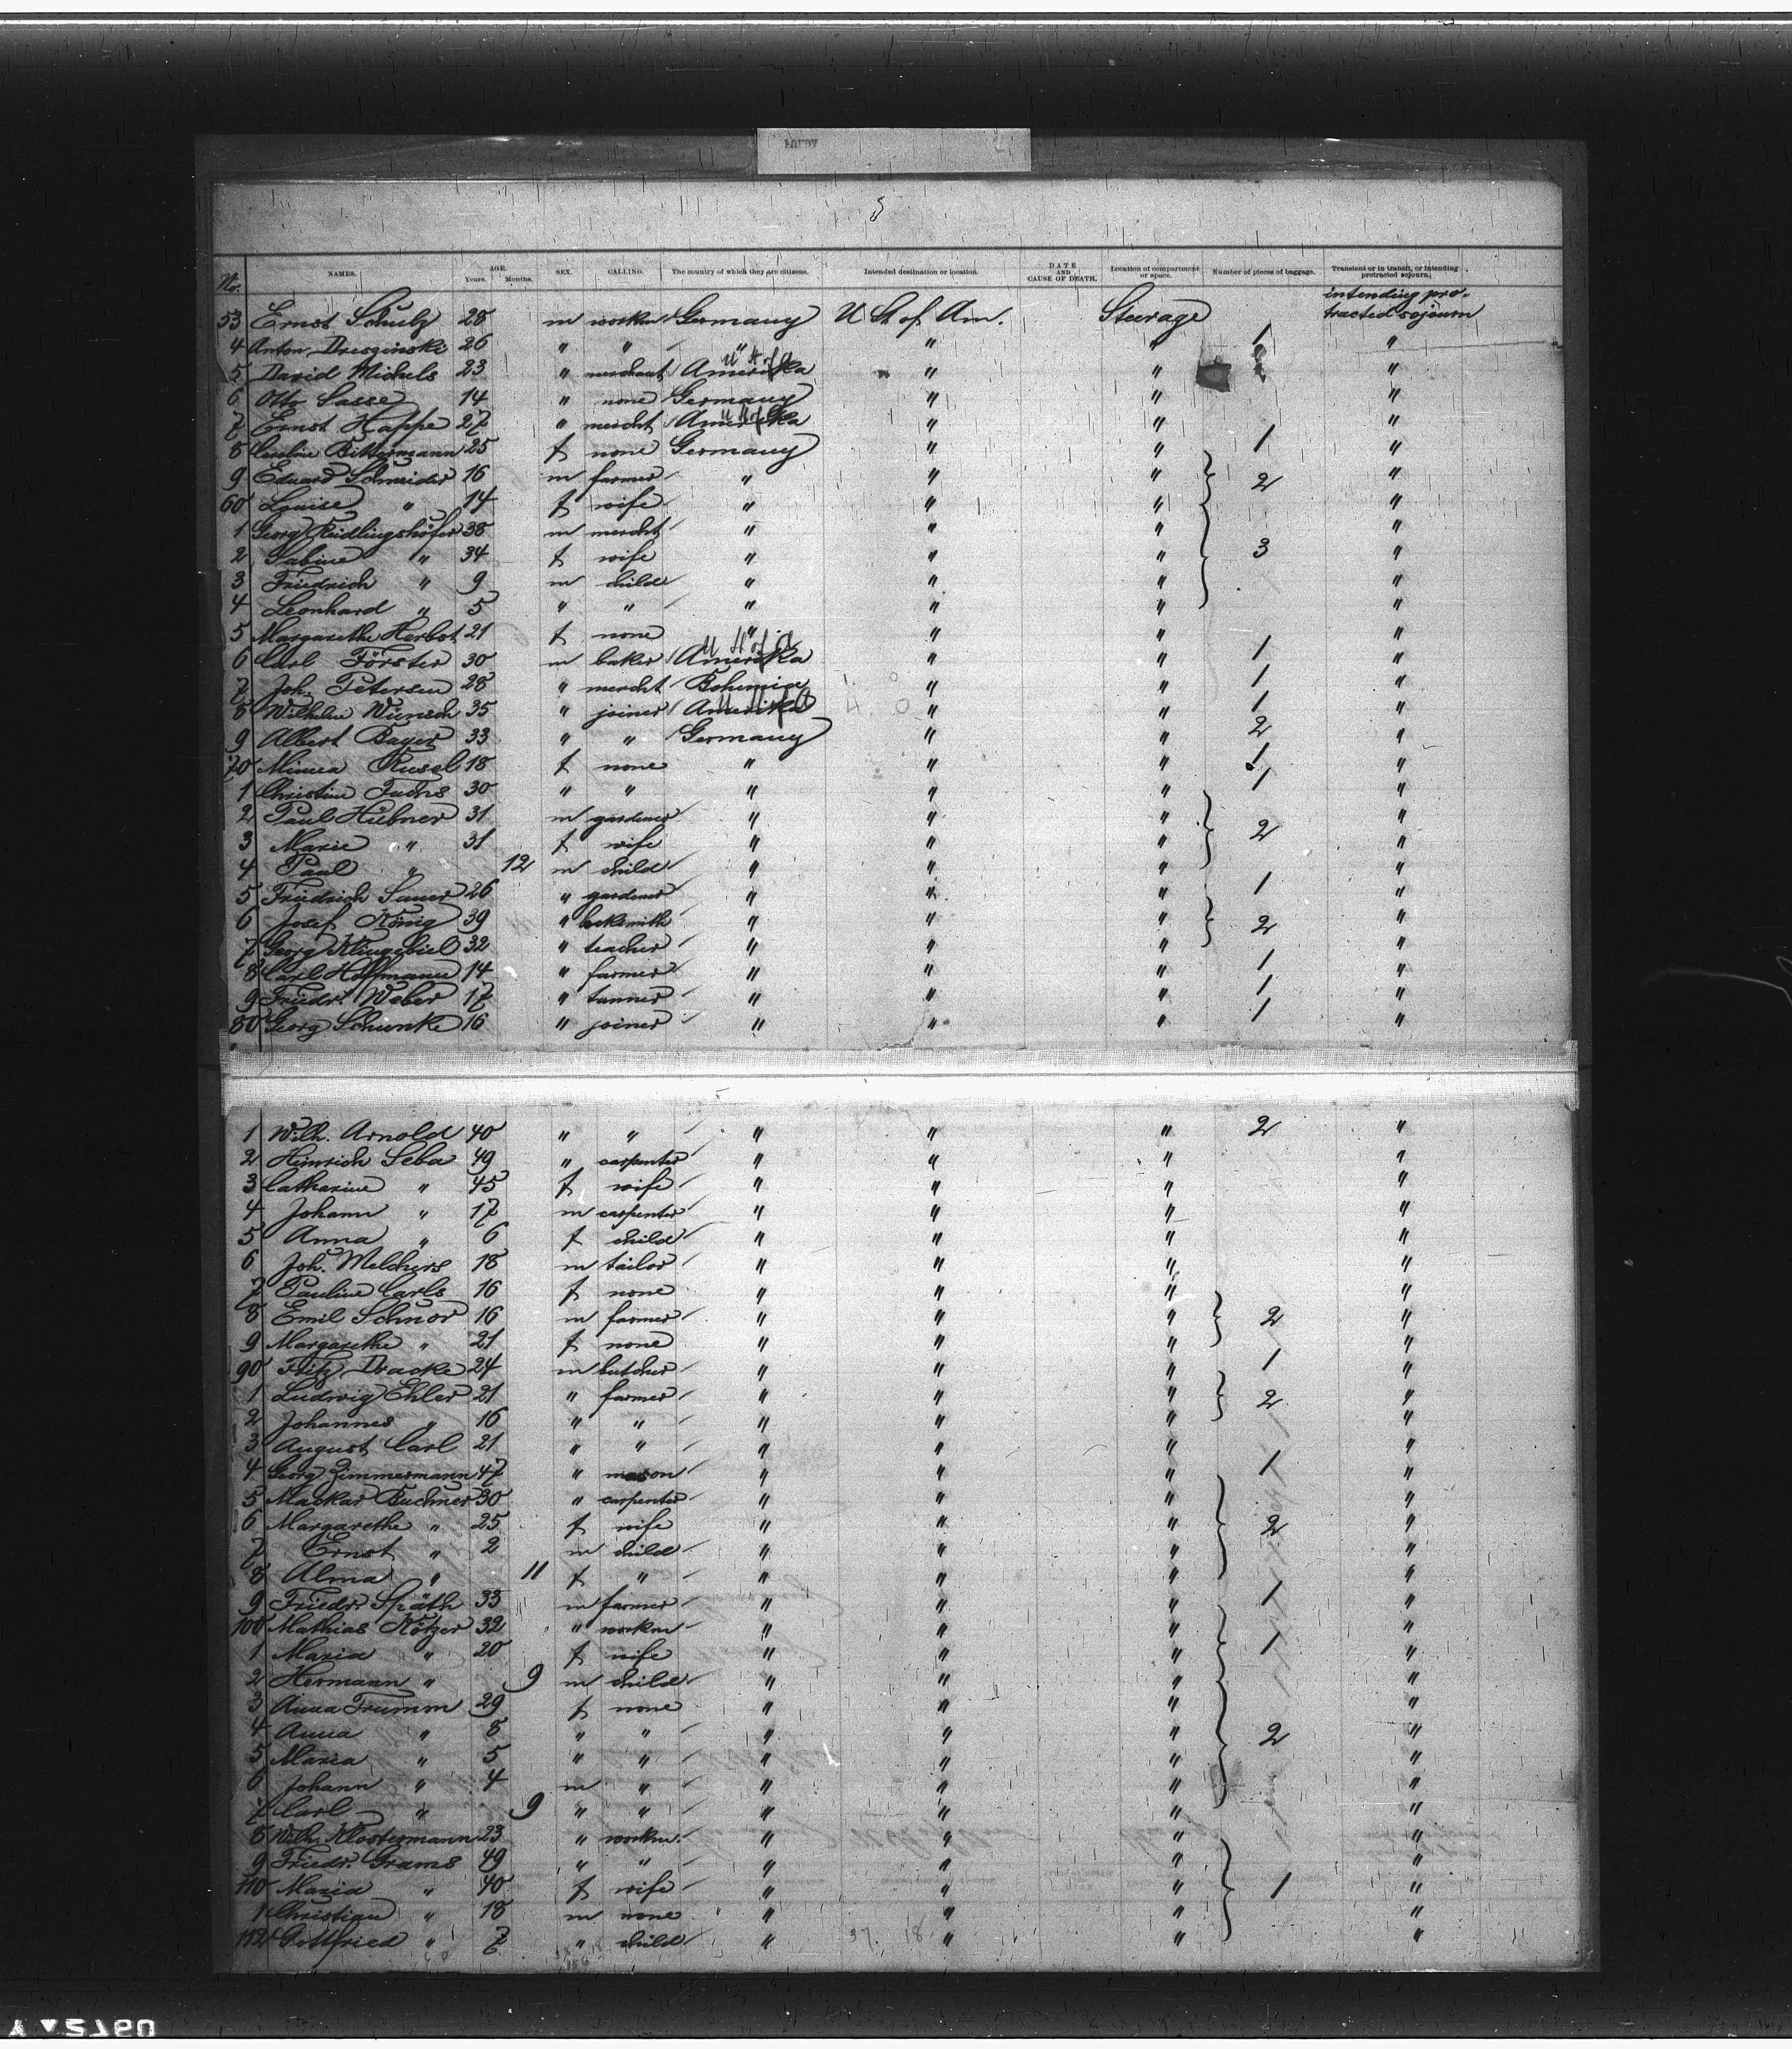 No. NAMES. AGE. Years. Months. SEX. CALLING. The country of which they are citizens. Intended destination or location. DATE AND CAUSE OF DEATH. Location of compartment or space. Number of pieces of baggage. Transient or in transit, or intending protracted sojourn.
intending pro-
53 Ernst Schulz 28 m workm Germany U St of Am. Steerage tracted sojourn
4 Anton Dresginski 26 " " " " " 1 "
5 David Michels 23 " merchant Amerika U St of A " " "
6 Otto Sasse 14 " none Germany " " "
7 Ernst Happe 27 " mercht Amerika " " "
8 Caroline Bittermann 25 f none Germany " " 1 "
9 Eduard Schneider 16 m farmer " " " 2 "
60 Louise " 14 f wife " " " "
1 Georg 38 m mercht " " " "
2 Sabine " 34 f wife " " " 3 "
3 Friedrich " 9 m child " " " "
4 Leonhard " 5 " " " " " "
5 Margarethe Herbst 21 f none " " " "
6 Carl Förster 30 m baker Amerika U St of A " " 1 "
7 Joh. Petersen 28 " mercht Bohemia " " 1 "
8 Wilhelm Wünsch 35 " joiner Amerika " " 1 "
9 Albert Bayer 33 " " Germany " " 2 "
70 Minna Rusel 18 f none " " " 1 "
1 Christine Fuchs 30 " " " " " 1 "
2 Paul Hübner 31 m gardener " " " "
3 Marie " 31 f wife " " " 2 "
4 Paul " 12 m child " " " "
5 Friedrich Sauer 26 " gardener " " " 1 "
6 Josef König 39 " locksmith " " " 2 "
7 Georg Klingebiel 32 " teacher " " " "
8 Carl Hoffmann 14 " farmer " " " 1 "
9 Friedr. Weber 17 " tanner " " " 1 "
80 Georg Schunke 16 " joiner " " " 1 "
1 Wilh. Arnold 40 " " " " " 2 "
2 Heinrich Seba 49 " carpenter " " " "
3 Catharine " 45 f wife " " " "
4 Johann " 17 m carpenter " " " "
5 Anna " 6 f child " " " "
6 Joh. Melchers 18 m tailor " " " "
7 Pauline Carls 16 f none " " " "
8 Emil Schnor 16 m farmer " " " 2 "
9 Margarethe " 21 f none " " " "
90 Fritz Dracke 24 m butcher " " " 1 "
1 Ludwig Ehler 21 " farmer " " " 2 "
2 Johannes " 16 " " " " " "
3 August Carl 21 " " " " " "
4 Georg Zimmermann 47 " mason " " " 1 "
5 Buchner 30 " carpenter " " " "
6 Margarethe " 25 f wife " " " 2 "
7 Ernst " 2 m child " " " "
8 Alma " 11 f " " " " "
9 Friedr. Späth 33 m farmer " " " 1 "
100 Mathias Kötzer 32 " workm " " " "
1 Maria " 20 f wife " " " 1 "
2 Hermann " 9 m child " " " "
3 Anna Trumm 29 f none " " " "
4 Anna " 8 " " " " " 2 "
5 Maria " 5 " " " " " "
6 Johann " 4 m " " " " "
7 Carl " 9 " " " " " "
8 Wilh. Klostermann 23 " workm. " " " "
9 Friedr. Grams 49 " " " " " "
110 Maria " 40 f wife " " " 1 "
1 Christian " 18 m none " " " "
112 Gottfried " 7 " child " " " "